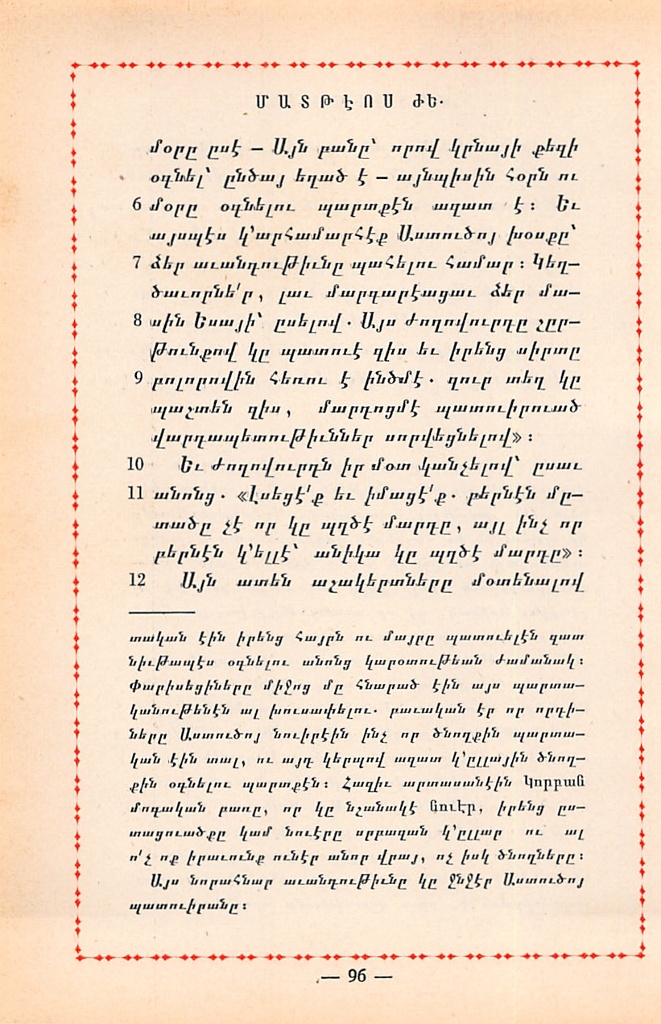 ՄԱՏԹԷՈՍ ԺԵ.
մօրը ըսէ — Այն բանը՝ որով կրնայի քեզի
օգնել՝ ընծայ եղած է — այնպիսին հօրն ու
6 մօրը օգնելու պարտքէն ազատ է։ Եւ
այսպէս կ՚արհամարհէք Աստուծոյ խօսքը՝
7 ձեր աւանդութիւնը պահելու համար։ Կեղ–
ծաւորնե՛ր, լաւ մարգարէացաւ ձեր մա–
8 սին Եսայի՝ ըսելով. Այս ժողովուրդը շըր–
թունքով կը պատուէ զիս եւ իրենց սիրտը
9 բոլորովին հեռու է ինծմէ. զուր տեղ կը
պաշտեն զիս, մարդոցմէ պատուիրուած
վարդապետութիւններ սորվեցնելով»։
10 Եւ ժողովուրդն իր մօտ կանչելով՝ ըսաւ
11 անոնց. «Լսեցէ՛ք եւ իմացէ՛ք. բերնէն մը–
տածը չէ որ կը պղծէ մարդը, այլ ինչ որ
բերնէն կ՚ելլէ՝ անիկա կը պղծէ մարդը»։
12 Այն ատեն աշակերտները մօտենալով
տական էին իրենց հայրն ու մայրը պատուելէն զատ
նիւթապէս օգնելու անոնց կարօտութեան ժամանակ։
Փարիսեցիները միջոց մը հնարած էին այս պարտա–
կանութենէն ալ խուսափելու. բաւական էր որ որդի–
ները Աստուծոյ նուիրէին ինչ որ ծնողքին պարտա–
կան էին տալ, ու այդ կերպով ազատ կ՚ըլլային ծնող–
քին օգնելու պարտքէն։ Հազիւ արտասանէին Կորբան
մոգական բառը, որ կը նշանակէ նուէր, իրենց ըս–
տացուածքը կամ նուէրը սրբազան կ՚ըլլար ու ալ
ո՛չ ոք իրաւունք ունէր անոր վրայ, ոչ իսկ ծնողները։
Այս նորահնար աւանդութիւնը կը ջնջէր Աստուծոյ
պատուիրանը։
— 96 —